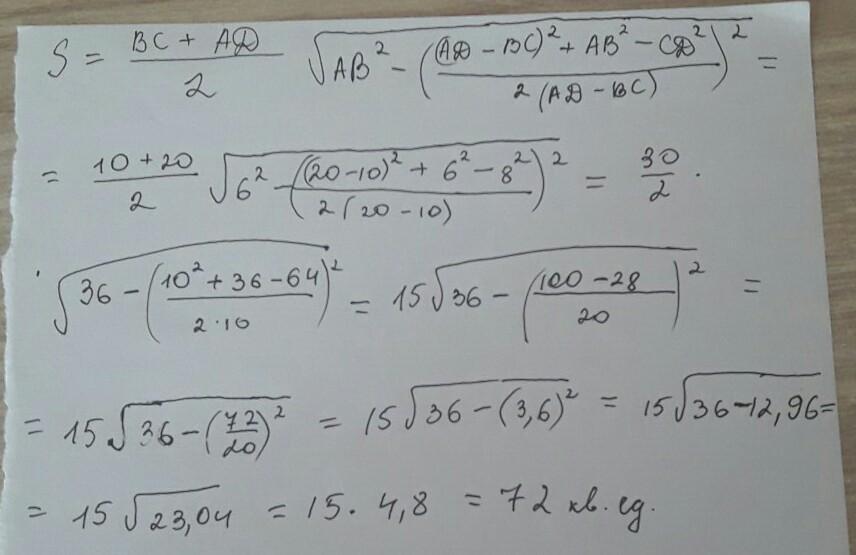 S = (BC + AD)/2 √(AB² − (((AD − BC)² + AB² − CD²)/(2(AD − BC)))²) =
= (10 + 20)/2 √(6² − (((20 − 10)² + 6² − 8²)/(2(20 − 10)))²) = 30/2 ·
· √(36 − ((10² + 36 − 64)/(2·10))²) = 15√(36 − ((100 − 28)/20)²) =
= 15√(36 − (72/20)²) = 15√(36 − (3,6)²) = 15√(36 − 12,96) =
= 15√(23,04) = 15 · 4,8 = 72 кв. ед.